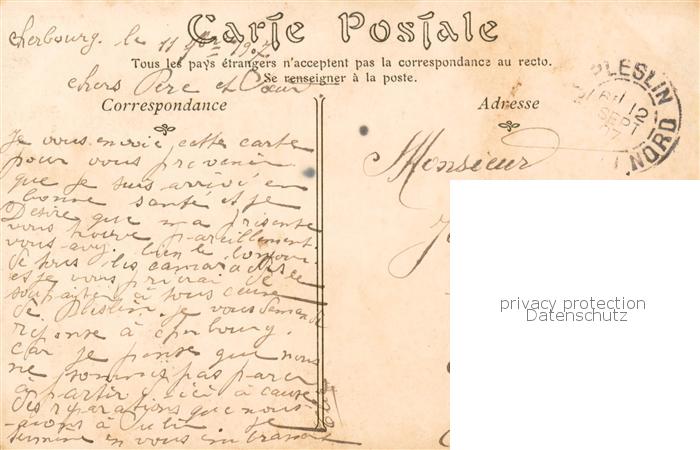 Carte Postale
Cherbourg. le 11 7bre 1907
Tous les pays étrangers n'acceptent pas la correspondance au recto.
Se renseigner à la poste.
chers Père et Sœur
Correspondance
Adresse
PLESLIN
12
SEPT
07
NORD
Monsieur
Je vous envoie cette carte
pour vous prevenir
que je suis arrivé en
bonne sante et je
Desire que ma presente
vous trouve pareillement.
vous avez bien le bonjour
de tous les camarades
et je vous prirai de
souhaiter à tous ceux
de Pleslin. je vous demande
reponse à cherbourg.
car je pense que nous
ne sommes pas parer
à partir d'ici à cause
des reparations que nous
avons à
je
termine en vous embrassant
privacy protection
Datenschutz